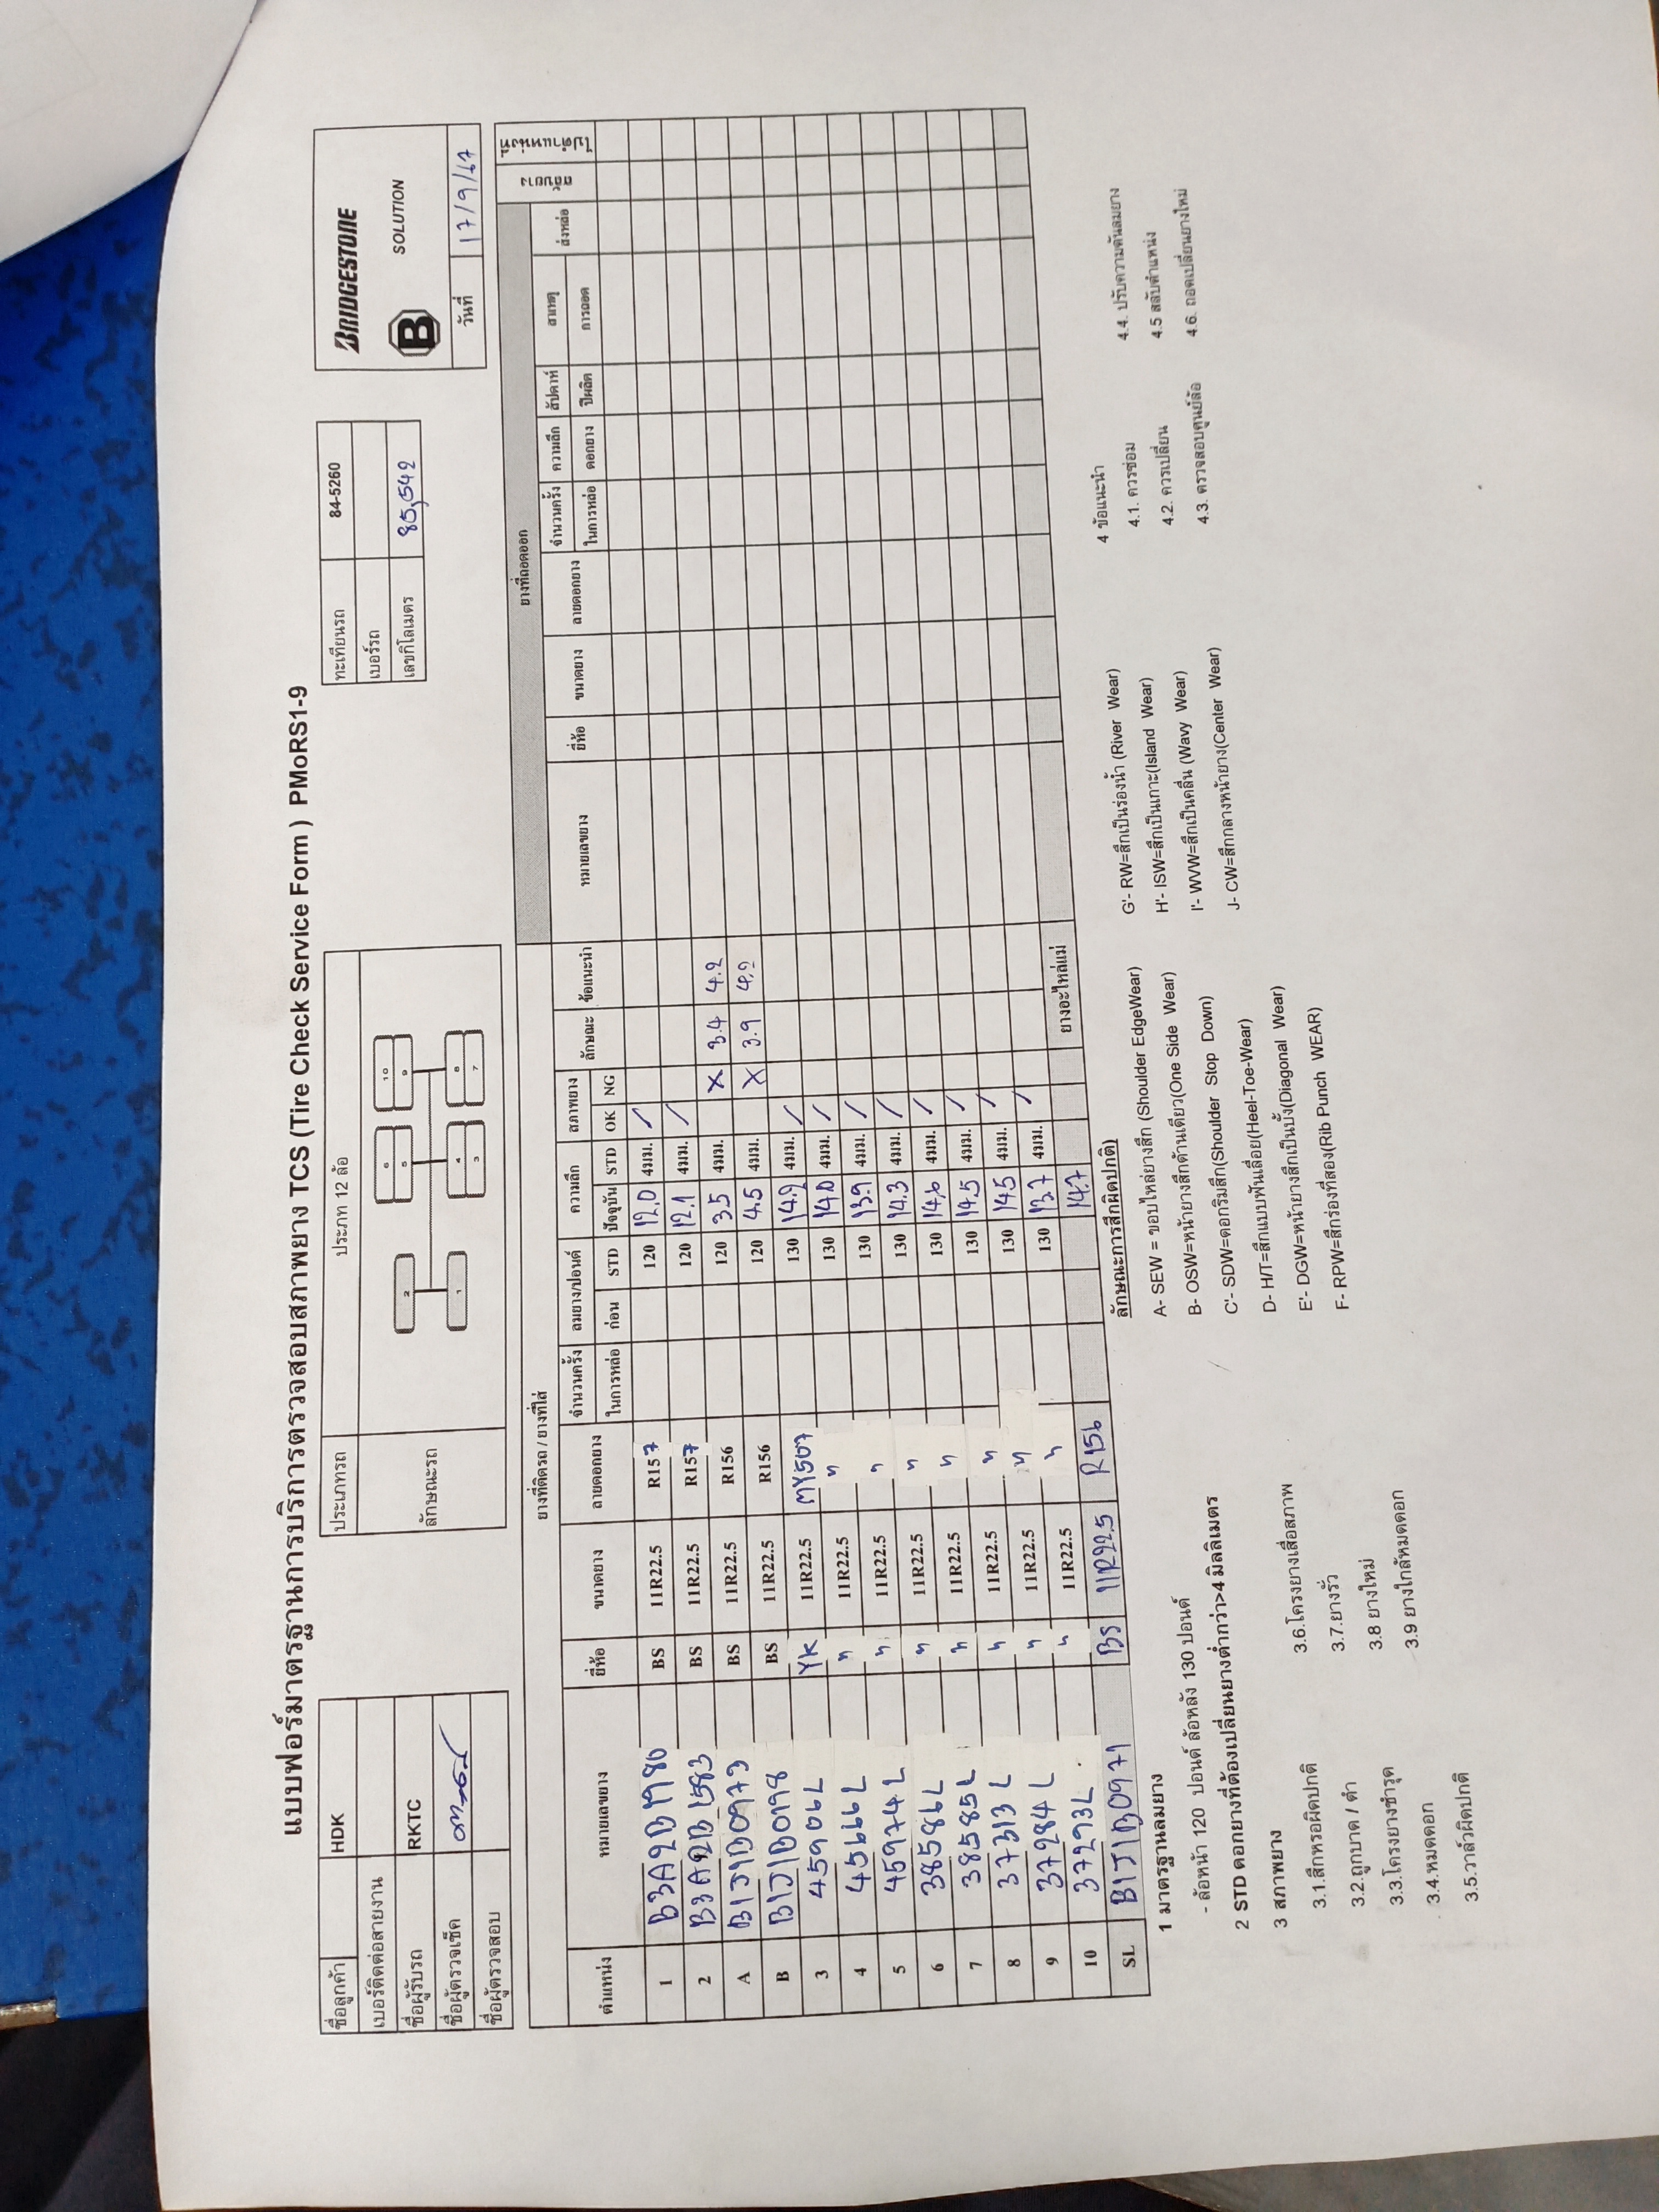 แบบฟอร์มมาตรฐานการบริการตรวจสอบสภาพยาง TCS (Tire Check Service Form ) PMoRS1-9
ชื่อลูกค้า HDK
เบอร์ติดต่อสายงาน
ชื่อผู้รับรถ RKTC
ชื่อผู้ตรวจเช็ค
ชื่อผู้ตรวจสอบ
ประเภทรถ ประเภท 12 ล้อ
ลักษณะรถ
2 6 5 10 9
1 4 3 8 7
ทะเทียนรถ 84-5260
เบอร์รถ
เลขกิโลเมตร 85,542
BRIDGESTONE
B SOLUTION
วันที่ 17/9/67
ยางที่ติดรถ / ยางที่ใส่ ยางที่ถอดออก
ตำแหน่ง หมายเลขยาง ยี่ห้อ ขนาดยาง ลายดอกยาง จำนวนครั้ง ในการหล่อ ลมยาง/ปอนด์ ก่อน STD ความลึก ปัจจุบัน STD สภาพยาง OK NG ลักษณะ ข้อแนะนำ หมายเลขยาง ยี่ห้อ ขนาดยาง ลายดอกยาง จำนวนครั้ง ในการหล่อ ความลึก ดอกยาง สัปดาห์ ปีผลิต สาเหตุ การถอด ส่งหล่อ ไปตำแหน่งที่
1 B3A2B1980 BS 11R22.5 R157 120 12.0 4มม. /
2 B3A2B1583 BS 11R22.5 R157 120 12.1 4มม. /
A B1J1B0973 BS 11R22.5 R156 120 3.5 4มม. X 3.4 4.2
B B1J1B0198 BS 11R22.5 R156 120 4.5 4มม. X 3.9 4.2
3 459066L YK 11R22.5 MY507 130 14.9 4มม. /
4 456666L " 11R22.5 " 130 14.0 4มม. /
5 459774L " 11R22.5 " 130 13.9 4มม. /
6 385886L " 11R22.5 " 130 14.3 4มม. /
7 385885L " 11R22.5 " 130 14.6 4มม. /
8 37313L " 11R22.5 " 130 14.5 4มม. /
9 37284L " 11R22.5 " 130 14.5 4มม. /
10 37293L " 11R22.5 " 130 13.7 4มม. /
SL B1J1B0971 BS 11R22.5 R156 14.7 ยางอะไหล่แม่
1 มาตรฐานลมยาง
- ล้อหน้า 120 ปอนด์ ล้อหลัง 130 ปอนด์
2 STD ดอกยางที่ต้องเปลี่ยนยางต่ำกว่า>4 มิลลิเมตร
3 สภาพยาง
3.1.สึกหรอผิดปกติ
3.2.ถูกบาด / ตำ
3.3.โครงยางชำรุด
3.4.หมดดอก
3.5.วาล์วผิดปกติ
3.6.โครงยางเสื่อสภาพ
3.7.ยางรั่ว
3.8 ยางใหม่
3.9 ยางใกล้หมดดอก
ลักษณะการสึกผิดปกติ)
A- SEW = ขอบไหล่ยางสึก (Shoulder EdgeWear)
B- OSW=หน้ายางสึกด้านเดียว(One Side Wear)
C'- SDW=ดอกริมสึก(Shoulder Stop Down)
D- H/T=สึกแบบฟันเลื่อย(Heel-Toe-Wear)
E'- DGW=หน้ายางสึกเป็นบั้ง(Diagonal Wear)
F- RPW=สึกร่องที่สอง(Rib Punch WEAR)
G'- RW=สึกเป็นร่องน้ำ (River Wear)
H'- ISW=สึกเป็นเกาะ(Island Wear)
I'- WVW=สึกเป็นคลื่น (Wavy Wear)
J- CW=สึกกลางหน้ายาง(Center Wear)
4 ข้อแนะนำ
4.1. ควรซ่อม
4.2. ควรเปลี่ยน
4.3. ตรวจสอบศูนย์ล้อ
4.4. ปรับความดันลมยาง
4.5 สลับตำแหน่ง
4.6. ถอดเปลี่ยนยางใหม่